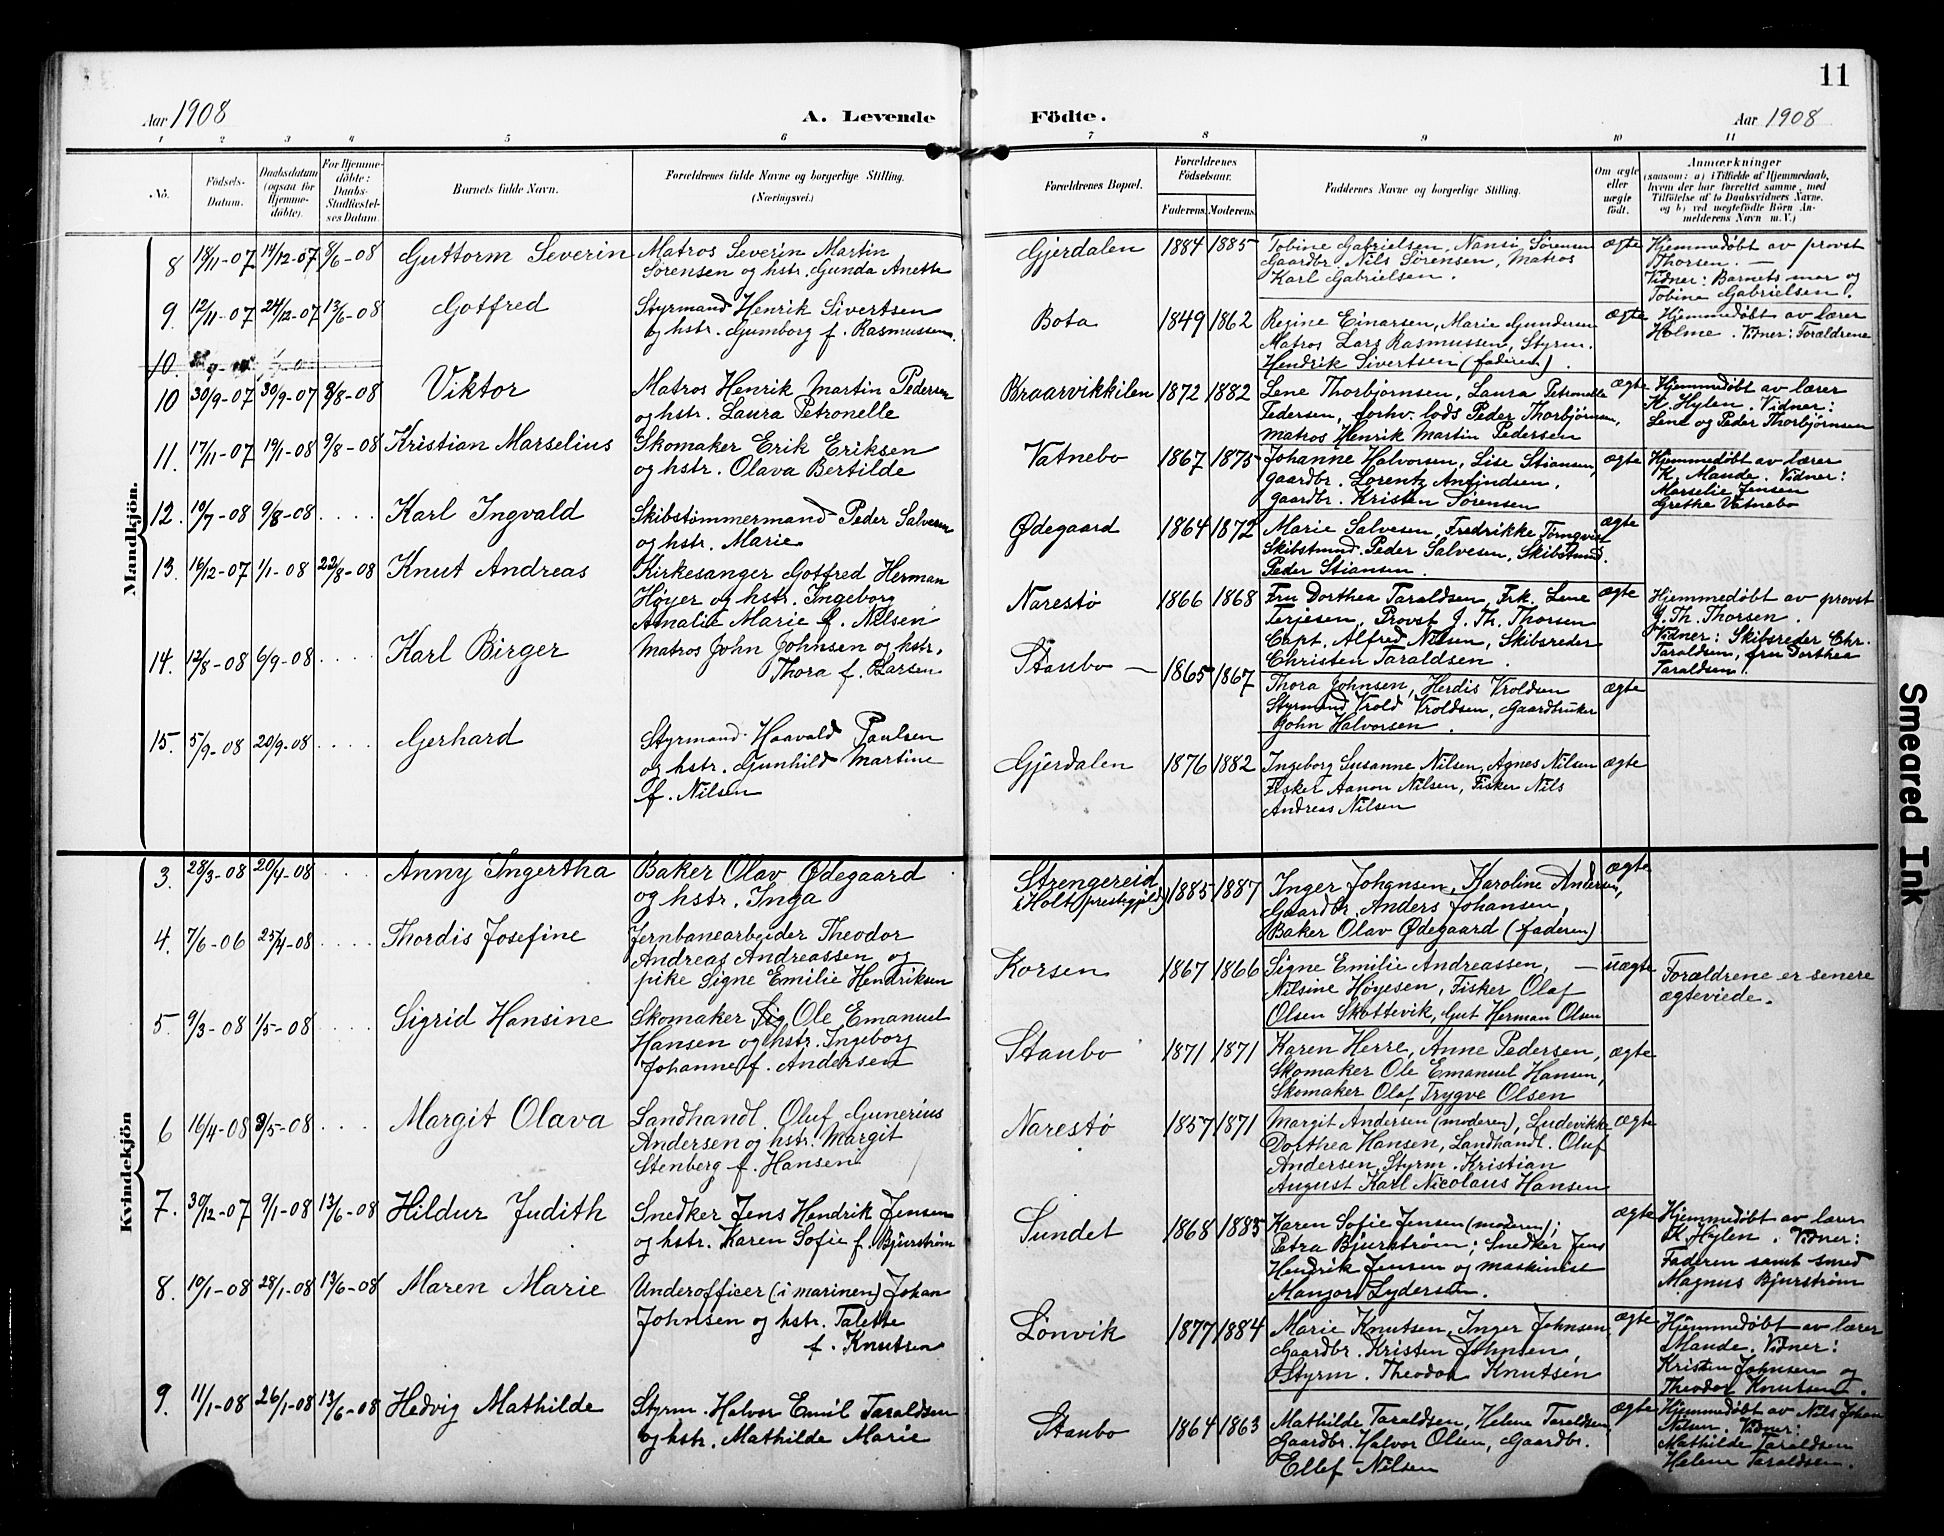 11
Aar 1908
A. Levende
Födte.
Aar 1908
1 2 3 4 5 6 7 8 9 10 11
No.
Födsels-Datum.
Daabsdatum (ogsaa för Hjemme-döbte).
For Hjemme-döbte: Daabs-Stadfæstelses Datum.
Barnets fulde Navn.
Forældrenes fulde Navne og borgerlige Stilling. (Næringsvei.)
Forældrenes Bopæl.
Forældrenes Födselsaar.
Faderens. Moderens.
Faddernes Navne og borgerlige Stilling.
Om ægte eller uægte födt.
Anmærkninger
(saasom: a) i Tilfælde af Hjemmedaab, hvem der har forrettet samme, med Tilföielse af to Daabsvidners Navne, og b) ved uægtefödte Börn Anmelderens Navn m. V.)
Mandkjön.
8 18/11-07 14/12-07 8/6-08 Guttorm Severin
Matros Severin Martin
Sørensen og hstr. Gunda Anette
Gjerdalen 1884 1885
Tobine Gabrielsen, Nansi Sørensen
Gaardbr. Nils Sørensen, Matros
Karl Gabrielsen.
ægte
Hjemmedøbt av provst
Thorsen. —
Vidner: Barnets mor og
Tobine Gabrielsen.
9. 12/11-07 24/12-07 13/6-08 Gotfred
Styrmand Henrik Sivertsen
og hstr. Gumborg f. Rasmussen.
Bota 1849 1862
Regine Einarsen, Marie Gundersen
Matros Lars Rasmussen, Styrm.
Hendrik Sivertsen (faderen).
ægte
Hjemmedøbt av lærer
Holme. Vidner: Forældrene
10.
10 30/9-07 30/9-07 8-08 Viktor
Matros Henrik Martin Pedersen
og hstr. Laura Petronelle
Braarvikkilen 1872 1882
Lene Thorbjørnsen, Laura Petronelle
Pedersen, forhv. lods Peder Thorbjørnsen,
Matros Henrik Martin Pedersen
ægte
Hjemmedøbt av lærer
K. Hylen. Vidner:
Lene og Peder Thorbjørnsen
11. 17/11-07 19/1-08 9/8-08 Kristian Marselius
Skomaker Erik Eriksen
og hstr. Olava Bertilde
Vatnebo 1867 1875
Johanne Halvorsen, Lise Stiansen
gaardbr. Lorentz Anfindsen,
gaardbr. Kristen Sørensen
ægte
Hjemmedøbt av lærer
K. Mande. Vidner:
Marselie Jensen
Grethe Vatnebo
12. 10/7-08 9/8-08 .... Karl Ingvald
Skibstømmermand Peder Salvesen
og hstr. Marie
Ødegaard 1864 1872
Marie Salvesen, Fredrikke Törnqvist
Skibstmnd. Peder Salvesen, Skibstmnd.
Peder Stiansen.
ægte
13. 16/12-07 1/1-08 22/8-08 Knut Andreas
Kirkesanger Gotfred Herman
Høyer og hstr. Ingeborg
Amalie Marie f. Nilsen
Narestø 1866 1868
Fru Dorthea Taraldsen, Frk. Lene
Terjesen, Provst J. Th. Thorsen
Capt. Alfred Nilsen, Skibsreder
Christen Taraldsen.
ægte
Hjemmedøbt av provst
J. Th. Thorsen.
Vidner: Skibsreder Chr.
Taraldsen, fru Dorthea
Taraldsen.
14. 12/8-08 6/9-08 .... Karl Birger
Matros John Johnsen og hstr.
Thora f. Larsen
Staubo — 1865 1867
Thora Johnsen, Herdis Vroldsen
Styrmand Vrold Vroldsen, Gaardbruker
John Halvorsen.
ægte
15. 5/9-08 20/9-08 .... Gerhard
Styrmand Haavald Paulsen
og hstr. Gunhild Martine
f. Nilsen
Gjerdalen 1876 1882
Ingeborg Susanne Nilsen, Agnes Nilsen
Fisker Aanon Nilsen, Fisker Nils
Andreas Nilsen
ægte
Kvindekjön
3. 28/3-08 20/4-08 .... Anny Ingertha
Baker Olav Ødegaard
og hstr. Inga
Strengereid
i Holt prestegjeld) 1885 1887
Inger Johansen, Karoline Andersen,
Gaardbr. Anders Johansen,
Baker Olav Ødegaard (faderen)
ægte
4. 7/6-06 25/4-08 .... Thordis Josefine
Jernbanearbeider Theodor
Andreas Andreassen og
pike Signe Emilie Hendriksen
Korsen 1867 1866
Signe Emilie Andreassen, —
Nilsine Høyesen, Fisker Olaf
Olsen Skottevik, Gut Herman Olsen
uægte
Forældrene er senere
ægteviede.
5 9/3-08 1/5-08 .... Sigrid Hansine
Skomaker Sig Ole Emanuel
Hansen og hstr. Ingeborg
Johanne f. Andersen
Staubo 1871 1871
Karen Herre, Anne Pedersen,
Skomaker Ole Emanuel Hansen,
Skomaker Olaf Trygve Olsen
ægte
6 16/4-08 3/5-08 .... Margit Olava
Landhandl. Oluf Gunerius
Andersen og hstr. Margit
Stenberg f. Hansen
Narestø 1857 1871
Margit Andersen (moderen), Ludevikke
Dorthea Hansen, Landhandl. Oluf
Andersen, Styrm. Kristian
August Karl Nicolaus Hansen
ægte
7. 30/12-07 9/1-08 13/6-08 Hildur Judith
Snedker Jens Hendrik Jensen
og hstr. Karen Sofie f. Bjurstrøm
Sundet 1868 1885
Karen Sofie Jensen (moderen);
Petra Bjurstrøm; Snedker Jens
Hendrik Jensen og maskinist
Lydersen.
ægte
Hjemmedøbt av lærer
K. Hylen. Vidner:
Faderen samt smed
Magnus Bjurstrøm
8. 10/1-08 28/1-08 13/6-08 Maren Marie
Underofficer (i marinen) Johan
Johnsen og hstr. Talette
f. Knutsen
Lønvik 1877 1884
Marie Knutsen, Inger Johnsen
Gaardbr. Kristen Johnsen,
Styrm. Theodor Knutsen
ægte
Hjemmedøbt av lærer
Mande. Vidner:
Kristen Johnsen og
Theodor Knutsen.
9. 11/1-08 26/1-08 13/6-08 Hedvig Mathilde
Styrm. Halvor Emil Taraldsen
og hstr. Mathilde Marie
Staubo 1864 1863
Mathilde Taraldsen, Helene Taraldsen
Gaardbr. Halvor Olsen, Gaardbr.
Ellef Nilsen
ægte
Hjemmedøbt av Nils Johan
Nilsen. Vidner:
Mathilde Taraldsen
Helene Taraldsen.
Smeared Ink